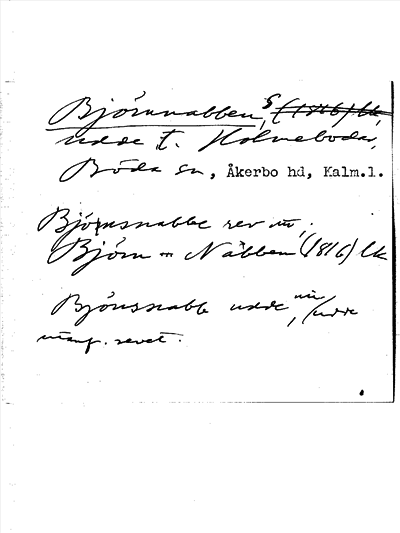 Björnnabben, S (1816) lk,
udde t. Holmeboda,
Böda sn, Åkerbo hd, Kalm.l.
Björnsnabbe rev
Björn Näbben (1816) lk
Björnsnabb udde /udde
revet.